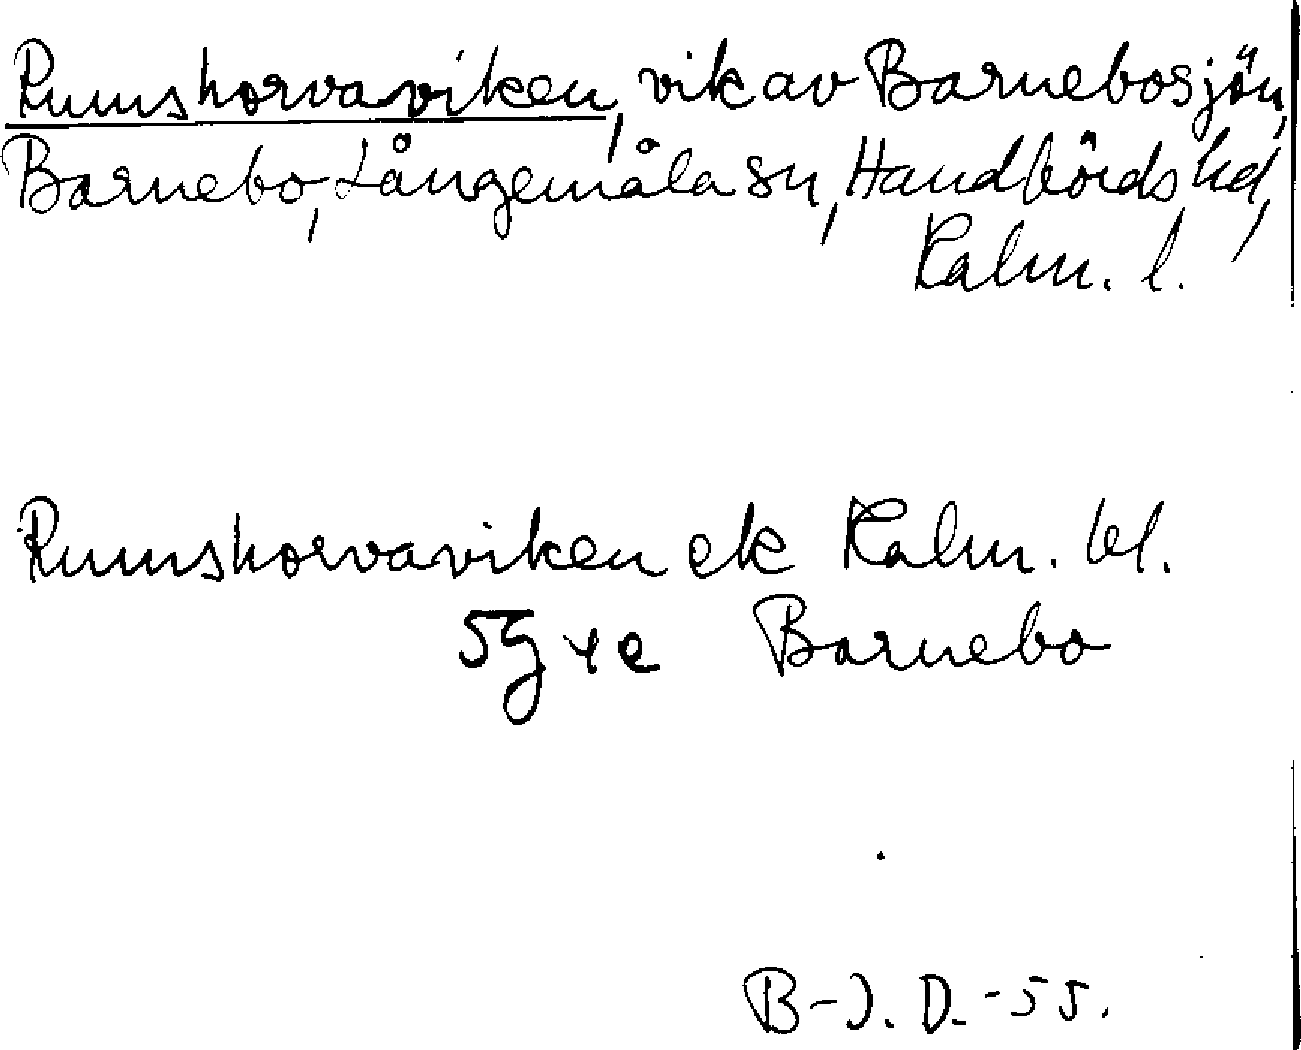 Rumshorvaviken, vik av Barnebosjön,
Barnebo, Långemåla sn, Handbörds hd,
Kalm. l.
Rumshorvaviken ek Kalm. bl.
5g y e Barnebo
B-J. D. -55.